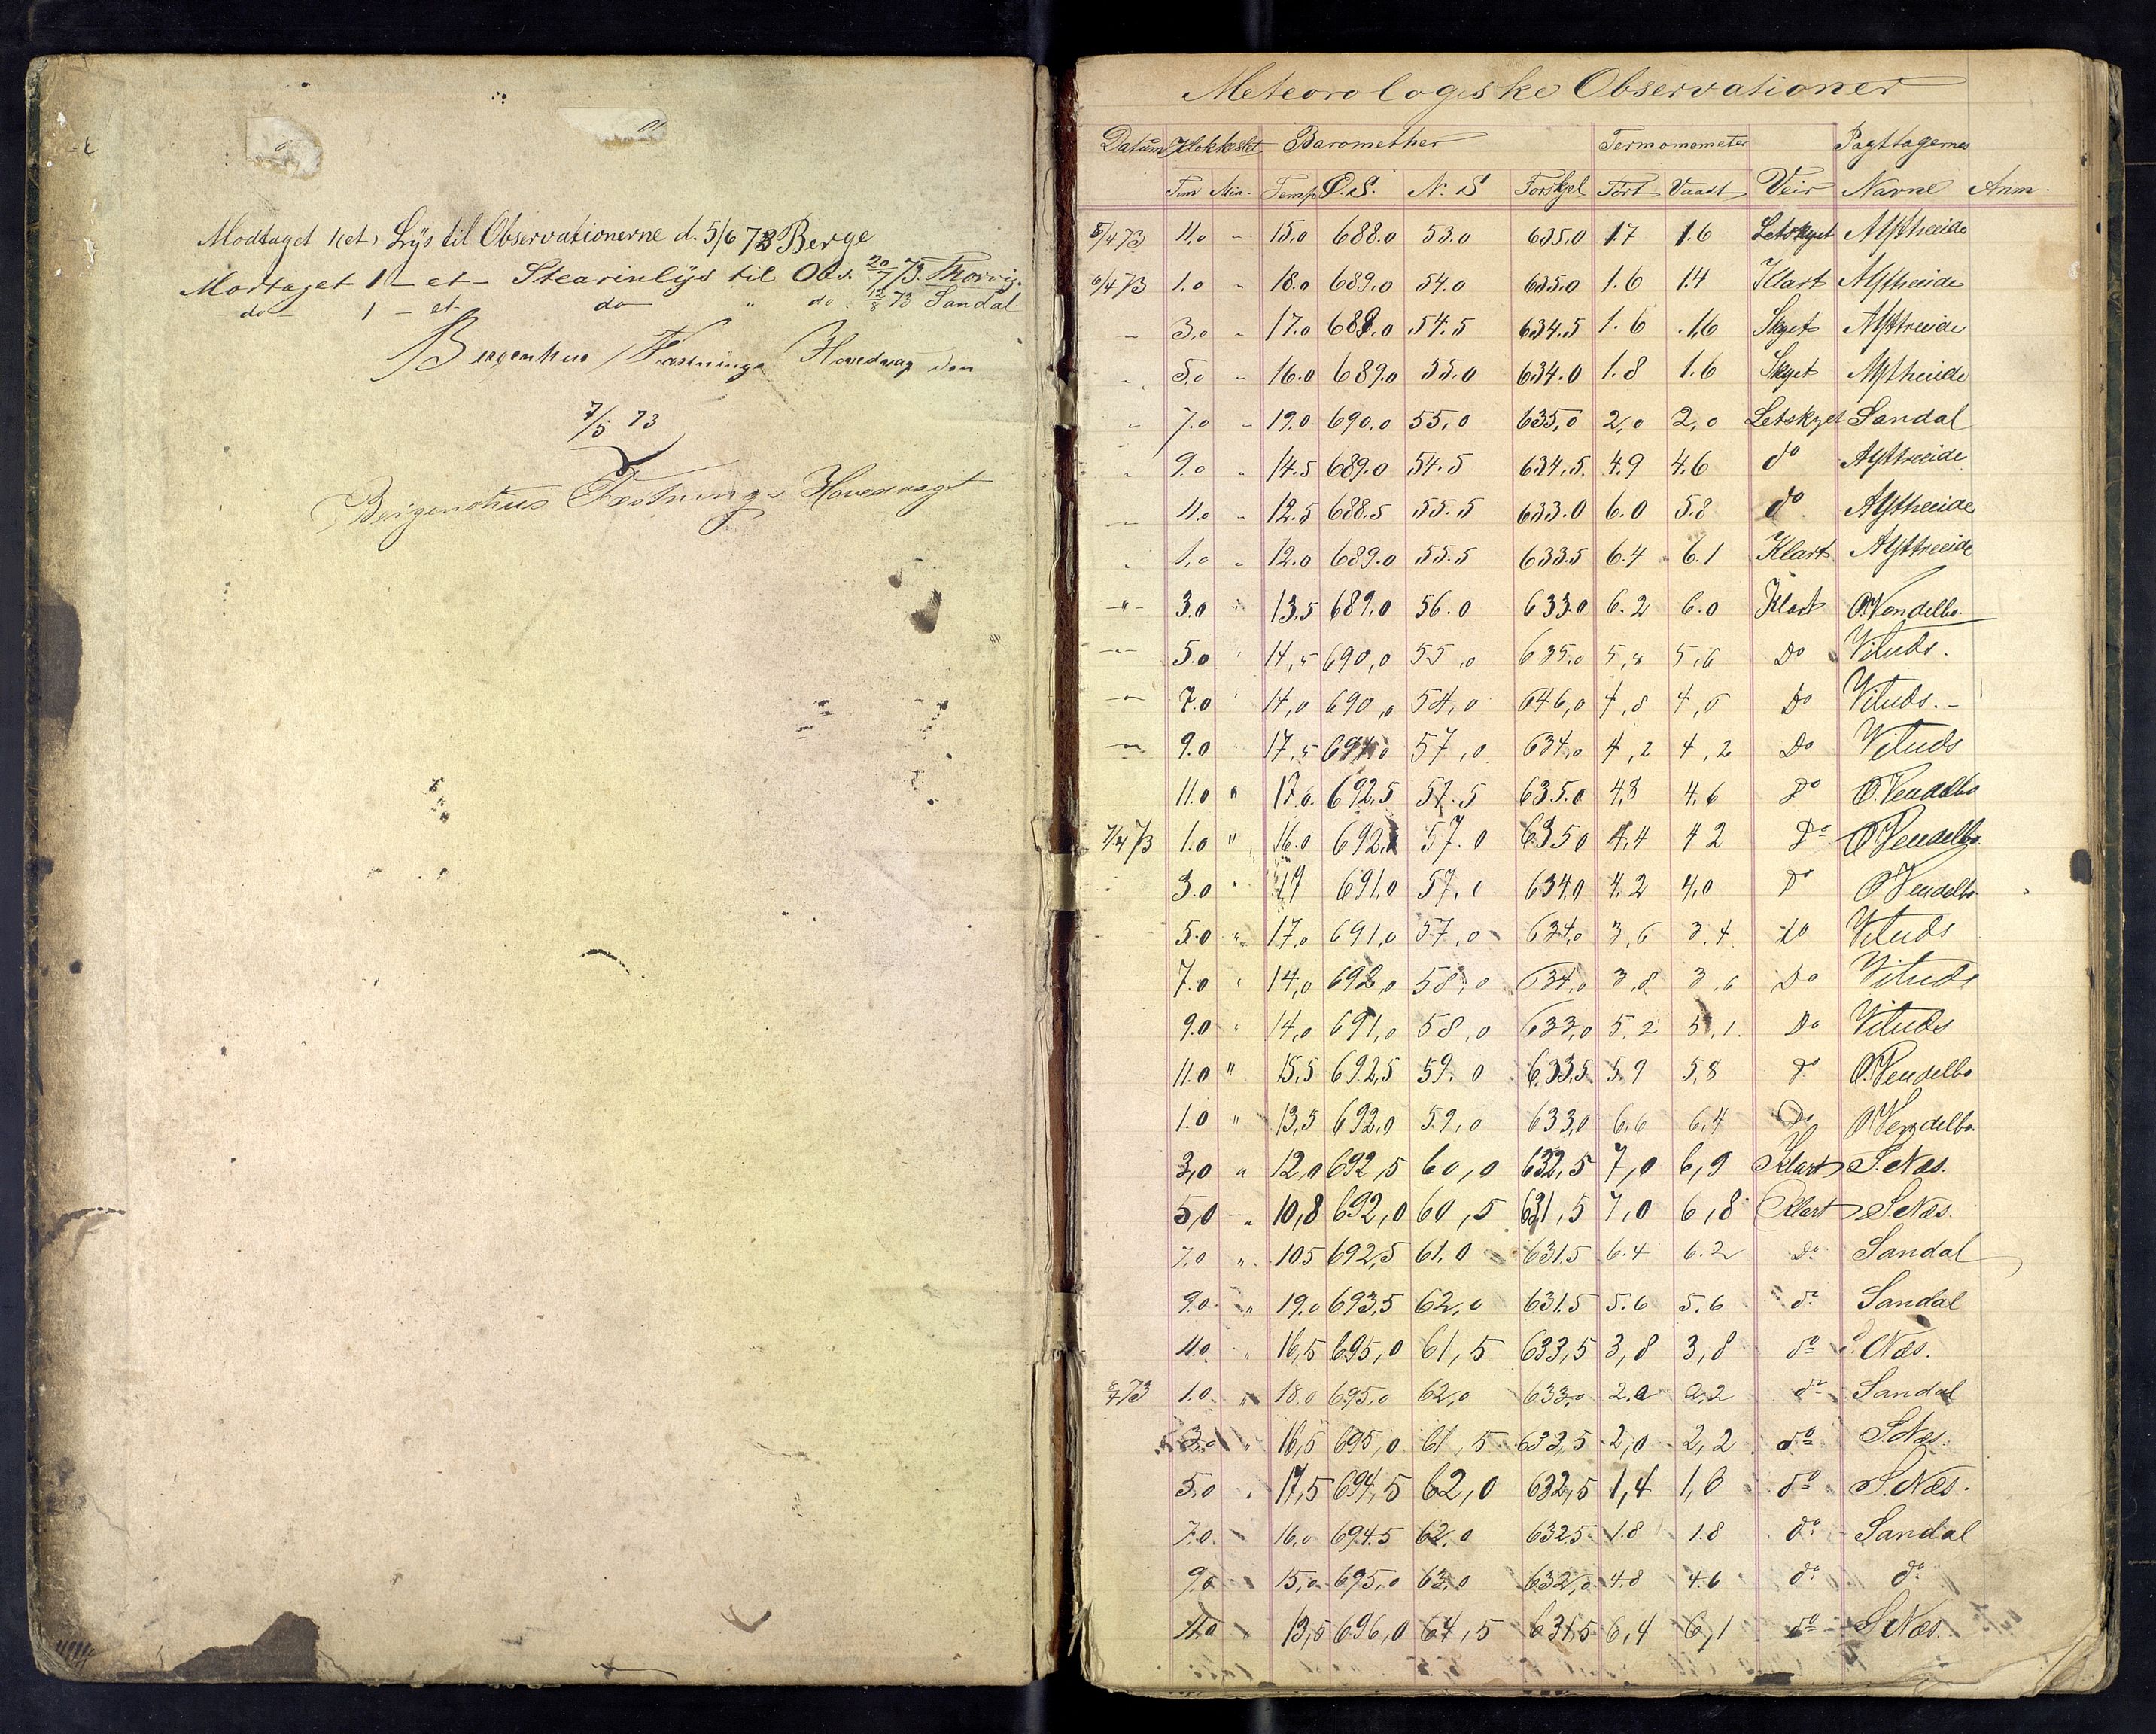 Modtaget 1(et) Lys til Observationerne d. 5/6 73 Berge
Modtaget 1 - et - Stearinlys til Obs. 20/7 73.
do 1 - et do " do 12/8 73 Sandal
Bergenhus Fæstnings Hovedvagt den
7/5 73
Bergenshus Fæstnings Hovedvagt
Meteorologiske Observationer
Datum Klokkeslet Baromether Termomometer Pagttagernes
Tim Min. Temp O.S. N. S Forskjel Tört Vaadt Veir Navne Anm.
5/4 73 11,0 - 15,0 688.0 53.0 635,0 1.7 1.6 Letskyet
6/4 73 1.0 - 18.0 689.0 54.0 635.0 1.6 1.4 Klart
- 3,0 - 17.0 689.0 54.5 634.5 1.6 1,6 Skyet
- 5.0 - 16.0 689.0 55.0 634.0 1.8 1.6 Skyet
- 7.0 - 19.0 690.0 55,0 635,0 2,0 2,0 Letskyet Sandal
- 9.0 - 14.5 689.0 54.5 634,5. 4.9 4.6 do
- 11.0 - 12.5 688.5 55.5 633.0 6.0 5.8 do
- 1,0 - 12.0 689.0 55.5 633.5 6.4 6.1 Klart
-"- 3.0 " 13,5 689,0 56.0 633.0 6.2 6.0 Klart O.Vendelbo.
-"- 5.0 " 14,5 690,0 55,0 635,0 5,8 5,6 Do Vituds.
-"- 7.0 " 14,0 690,0 54,0 646,0 4,8 4,6 Do Vituds.-
-"- 9.0 17,5 691,0 57,0 634,0 4,2 4,2 Do Vituds
11.0 " 17.0. 692,5 57.5 635.0 4,8 4.6 Do O.Vendelbo
7/4 73 1.0 " 16.0 692, 57.0 635 0 4,4 4 2 Do O Vendelbo.
3.0 " 17 691.0 57,0 634,0 4.2 4,0 Do O Vendelbo.
5.0 " 17,0 691,0 57,0 634,0 3,6 3,4 do Vituds
7.0 " 14,0 692,0 58,0 634,0 3,8 3,6 Do Vituds
9.0 " 14,0 691,0 58,0 633,0 5,2 5,1. Do Vituds
11.0 " 15,5 692,5 59.0 633,5 5.9 5,8 do O.Vendelbo
1.0 " 13,5 692,0 59,0 633,0 6,6 6,4 Do O Vendelbo.
3,0 " 12,0 692,5 60,0 632,5 7,0 6,9 Klart S.Næs.
5,0 " 10,8 692,0 60,5 631,5 7,0 6,8 Klart S Næs.
7,0 " 10.5 692,5 61.0 631.5 6.4 6.2 Do Sandal
9.0 " 19.0 693,5 62,0 631.5 5.6 5.6 do Sandal
11.0 " 16,5 695,0 61,5 633,5 3,8 3,8 do S Næs.
8/4 73 1.0 " 18.0 695,0 62,0 633,0 2.2 2,2 do Sandal
3.0 " 16,5 695,0 61,5 633,5 2,0 2,2 do S Næs.
5.0 " 17,5 694,5 62,0 632,5 1,4 1,6 do S.Næs.
7.0 " 16,0 694.5 62,0 632.5 1.8 1.8 do Sandal
9.0 " 15,0 695,0 63,0 632,0 4.8 4.6 do do
11.0 " 13,5 696,0 64,5 631,5 6,4 6,1 do S Næs.